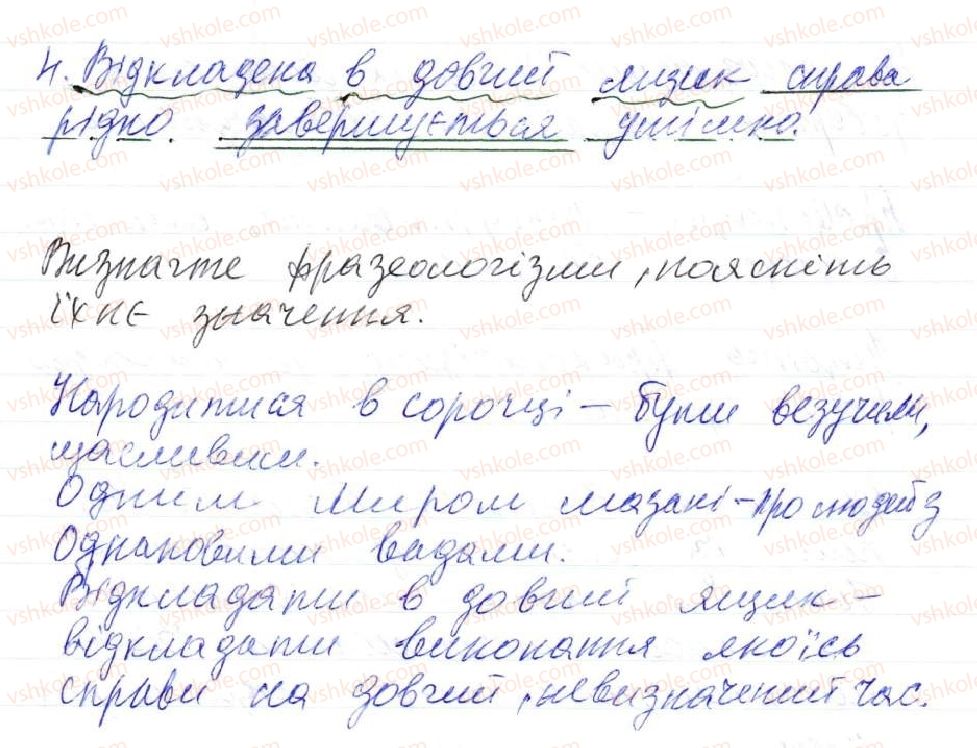 4. Відкладена в довгий ящик справа
рідко завершується успішно.
Визначте фразеологізми, поясніть
їхнє значення.
Народитися в сорочці – бути везучим,
щасливим.
Одним миром мазані – про людей з
однаковими вадами.
Відкладати в довгий ящик –
відкладати виконання якоїсь
справи на довгий, невизначений час.